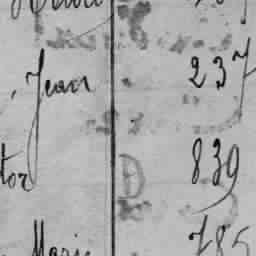 Jean 237
tor 839
Marie 785